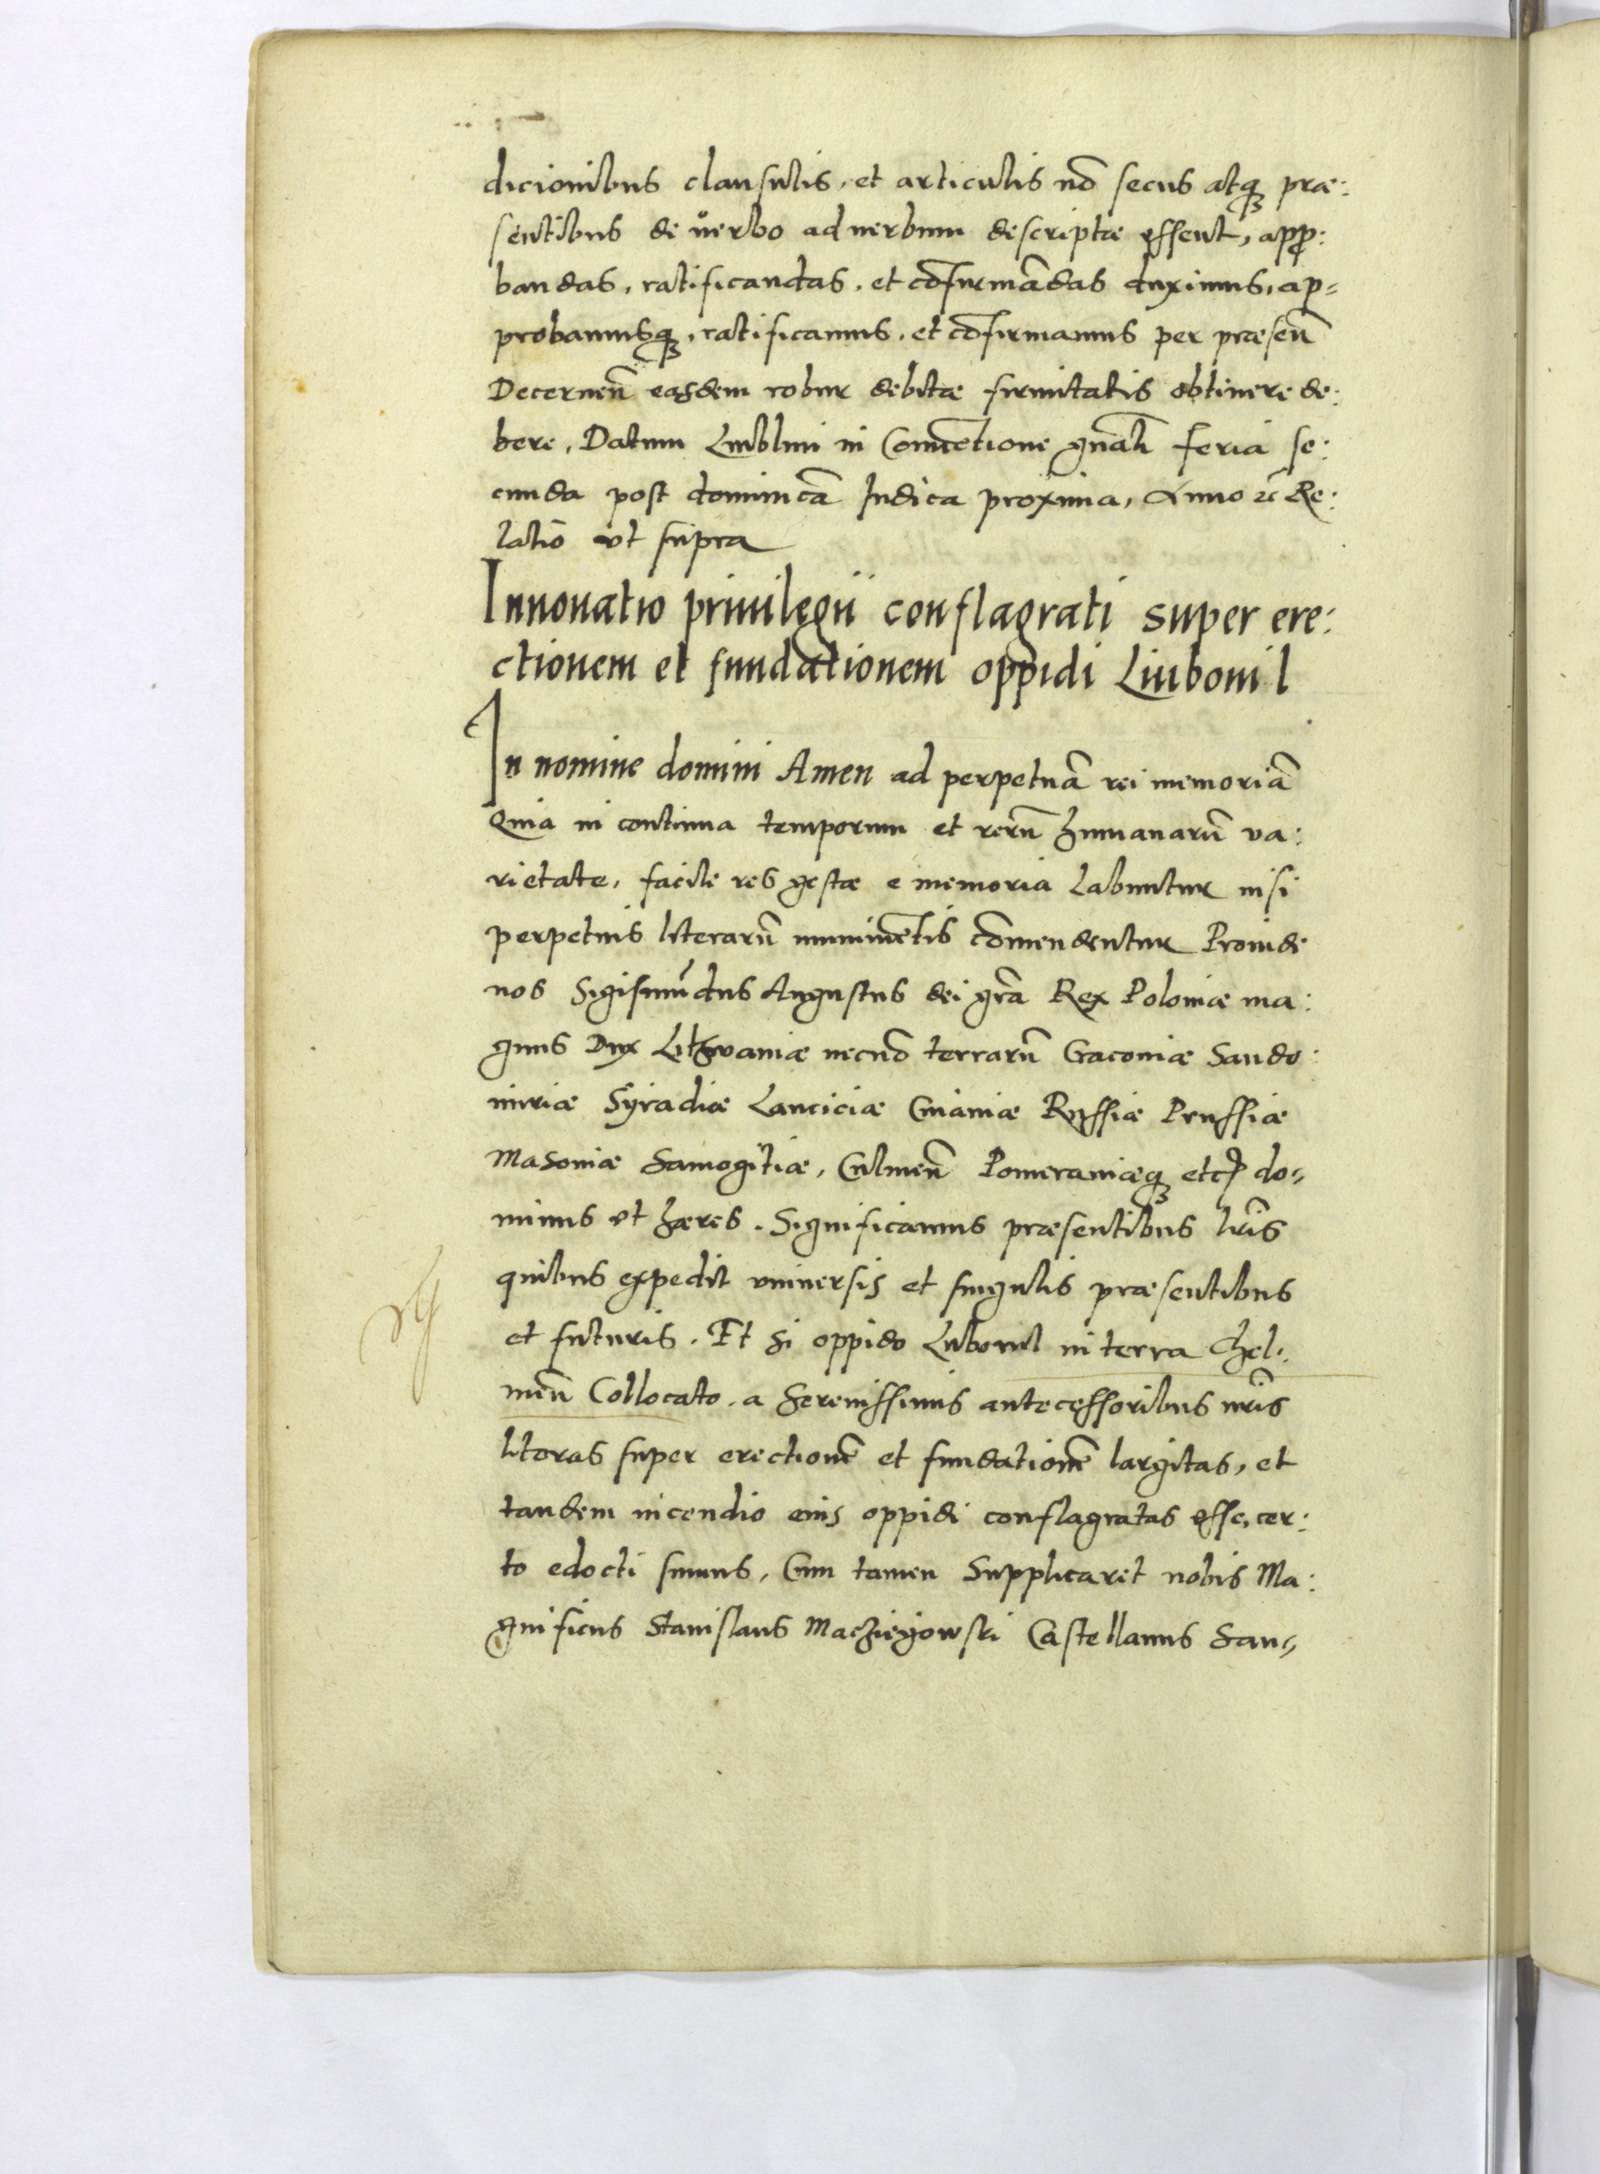 dicionibus clausulis, et articulis nō secus atq₃ præ:
sentibus de verbo ad uerbum descriptæ essent, appꝓ:
bandas, ratificandas, et cōfirmādas duximus, ap=
probamusq₃, ratificamus, et cōfirmamus per præsen̄
Decernen̄ easdem robur debitæ firmitatis obtinere de:
bere, Datum Lublini in Conuētione gn̄ali feria se:
cunda post dominicā Iudica proxima, Anno etc̄ Re:
latio ut supra
Innouatio priuilegii conflagrati super ere:
ctionem et fundationem oppidi Liubomil
In nomine domini Amen ad perpetuā rei memoriā
Quia in continua temporum et rerū humanarū va:
rietate, facile res gestæ e memoria labuntur nisi
perpetuis literarū munimētis cōmendentur Proinde
nos Sigismūdus Augustus dei gr̄a Rex Poloniæ ma:
gnus Dux Lithvaniæ necnō terrarū Cracouiæ Sando:
miriæ Syradiæ Lanciciæ Cuiauiæ Russiæ Prussiæ
Masouiæ Samogitiæ, Culmen̄ Pomeraniæq₃ etc do=
minus et hæres. Significamus præsentibus lr̄is
quibus expedit vniuersis et singulis præsentibus
et futuris. Et si oppido Luboml in terra Chel:
men̄ Collocato, a Serenissimis antecessoribus nr̄is
literas super erectionē et fundationē largitas, et
tandem incendio eius oppidi conflagratas esse, cer:
to edocti sumus, Cum tamen Supplicaret nobis Ma:
gnificus Stanislaus Maczieyowski Castellanus San=